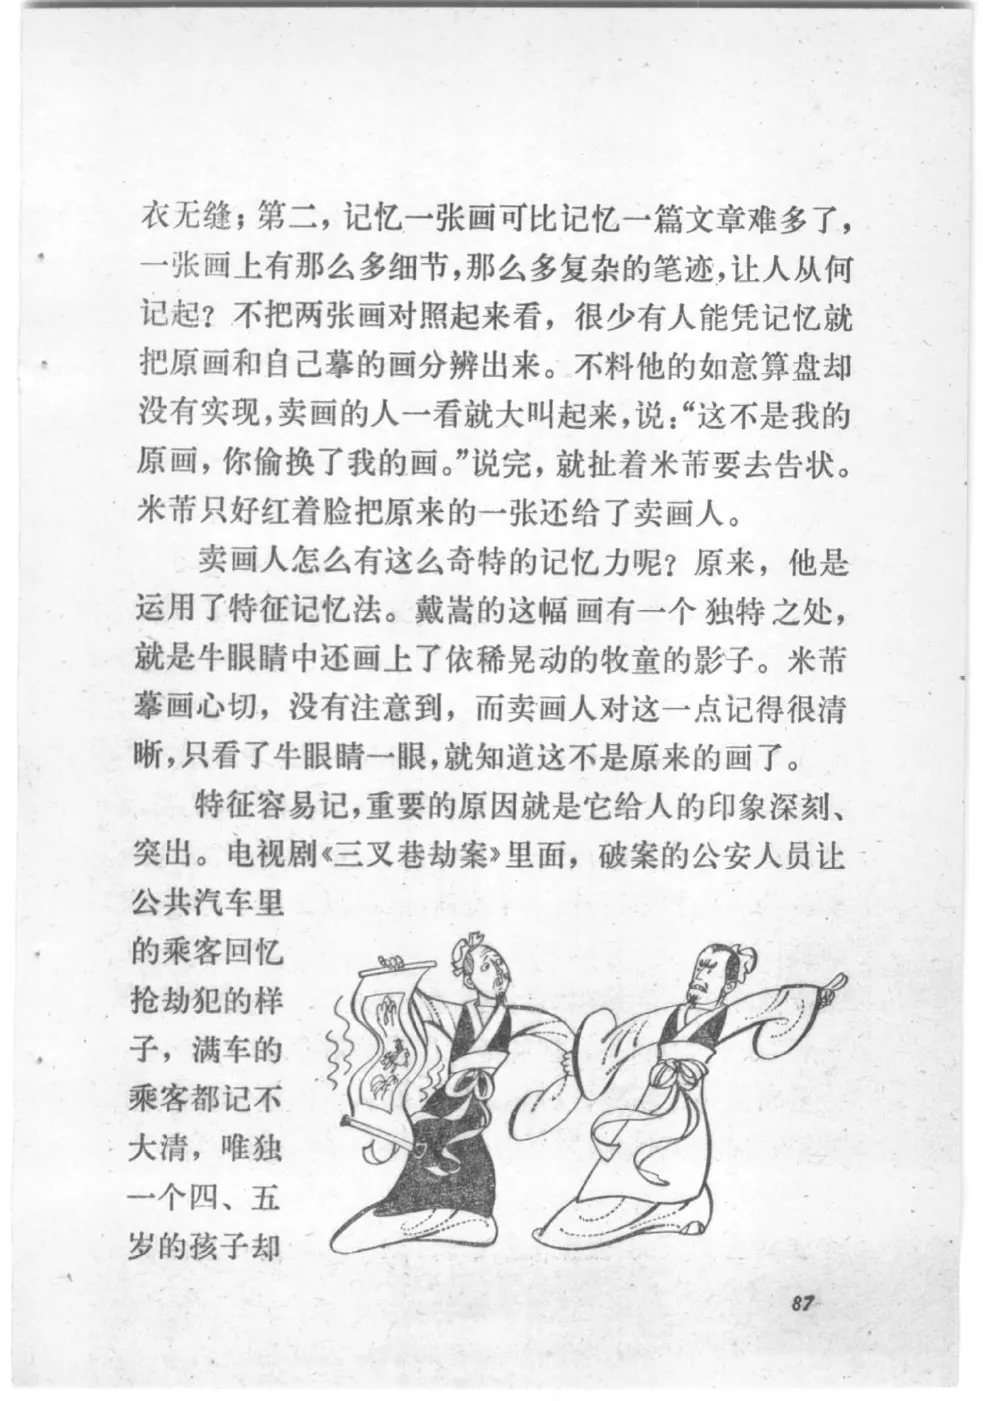 衣无缝；第二，记忆一张画可比记忆一篇文章难多了，
一张画上有那么多细节，那么多复杂的笔迹，让人从何
记起？不把两张画对照起来看，很少有人能凭记忆就
把原画和自己摹的画分辨出来。不料他的如意算盘却
没有实现，卖画的人一看就大叫起来，说：“这不是我的
原画，你偷换了我的画。”说完，就扯着米芾要去告状。
米芾只好红着脸把原来的一张还给了卖画人。
卖画人怎么有这么奇特的记忆力呢？原来，他是
运用了特征记忆法。戴嵩的这幅画有一个独特之处，
就是牛眼睛中还画上了依稀晃动的牧童的影子。米芾
摹画心切，没有注意到，而卖画人对这一点记得很清
晰，只看了牛眼睛一眼，就知道这不是原来的画了。
特征容易记，重要的原因就是它给人的印象深刻、
突出。电视剧《三叉巷劫案》里面，破案的公安人员让
公共汽车里
的乘客回忆
抢劫犯的样
子，满车的
乘客都记不
大清，唯独
一个四、五
岁的孩子却
87